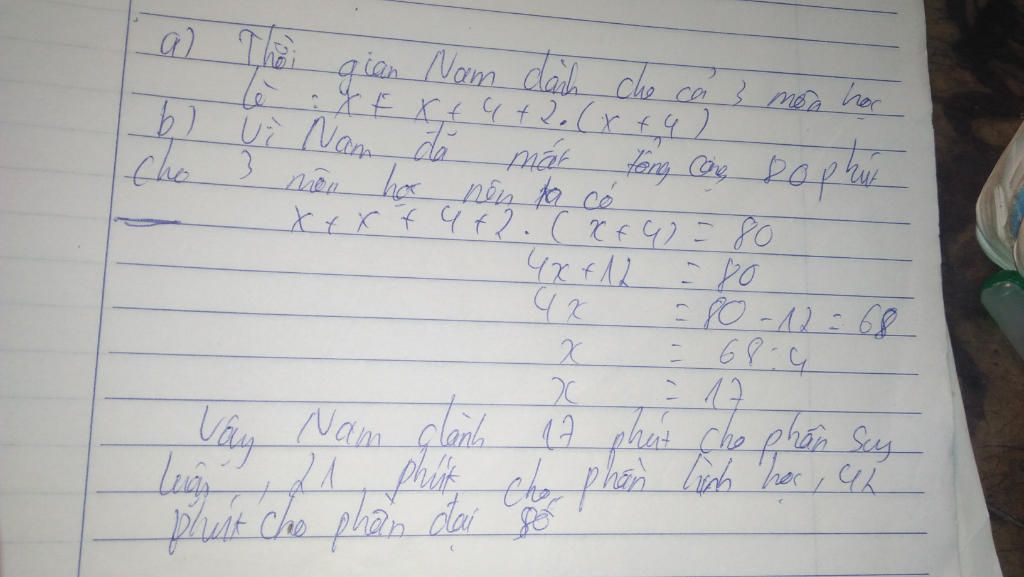 a) Thời gian Nam dành cho cả 3 môn học
là : x + x + 4 + 2 . ( x + 4 )
b) Vì Nam đã mất tổng cộng 80 phút
cho 3 môn học nên ta có
x + x + 4 + 2 . ( x + 4 ) = 80
4x + 12 = 80
4x = 80 - 12 = 68
x = 68 : 4
x = 17
Vậy Nam dành 17 phút cho phần suy
luận, 21 phút cho phần hình học, 42
phút cho phần đại số